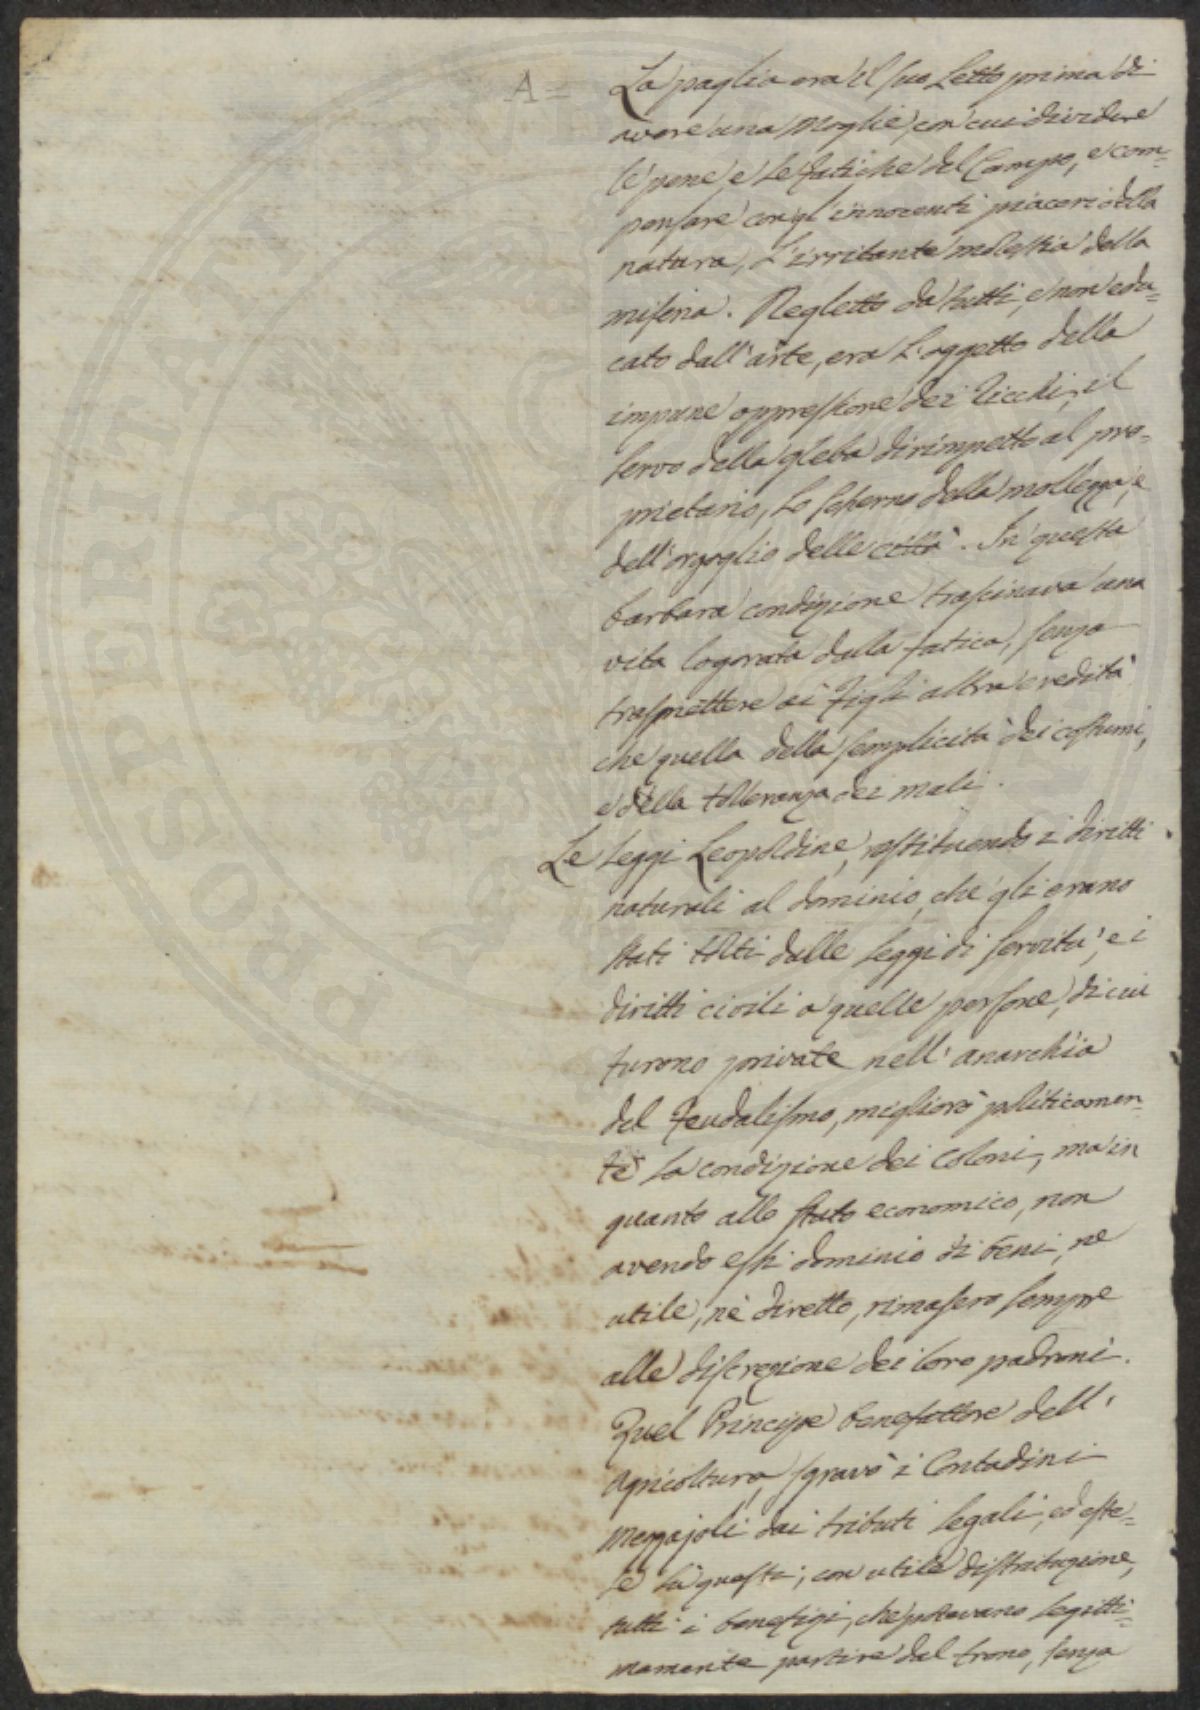 A =
La paglia era il suo Letto prima di
avere una Moglie, con cui dividere
le pene, e Le fatiche del Campo, e com=
pensare con gl'innocenti piaceri della
natura, L'irritante molestia della
miseria. Negletto da tutti, e non edu=
cato dall'arte, era L'oggetto della
impune oppressione dei Ricchi, il
servo della gleba dirimpetto al pro=
prietario, Lo scherno della mollezza, e
dell'orgoglio delle città. In questa
barbara condizione trascinava una
vita logorata dalla fatica, senza
trasmettere ai Figli altra eredità
che quella della semplicità dei costumi,
e della tolleranza dei mali.
Le Leggi Leopoldine, restituendo i diritti
naturali al dominio, che gli erano
stati tolti dalle Leggi di servitù, e i
diritti civili a quelle persone, di cui
furono private nell'anarchia
del Feudalismo, migliorò politicamen=
te La condizione dei Coloni, ma in
quanto allo stato economico, non
avendo essi dominio di beni, nè
utile, nè diretto, rimasero sempre
alla discrezione dei loro padroni.
Quel Principe benefattore dell'
Agricoltura, sgravò i Contadini
Mezzajoli dai tributi legali, ed este=
se su questi, con utile distribuzione,
tutti i benefizi, che potevano legitti=
mamente partire dal trono, senza